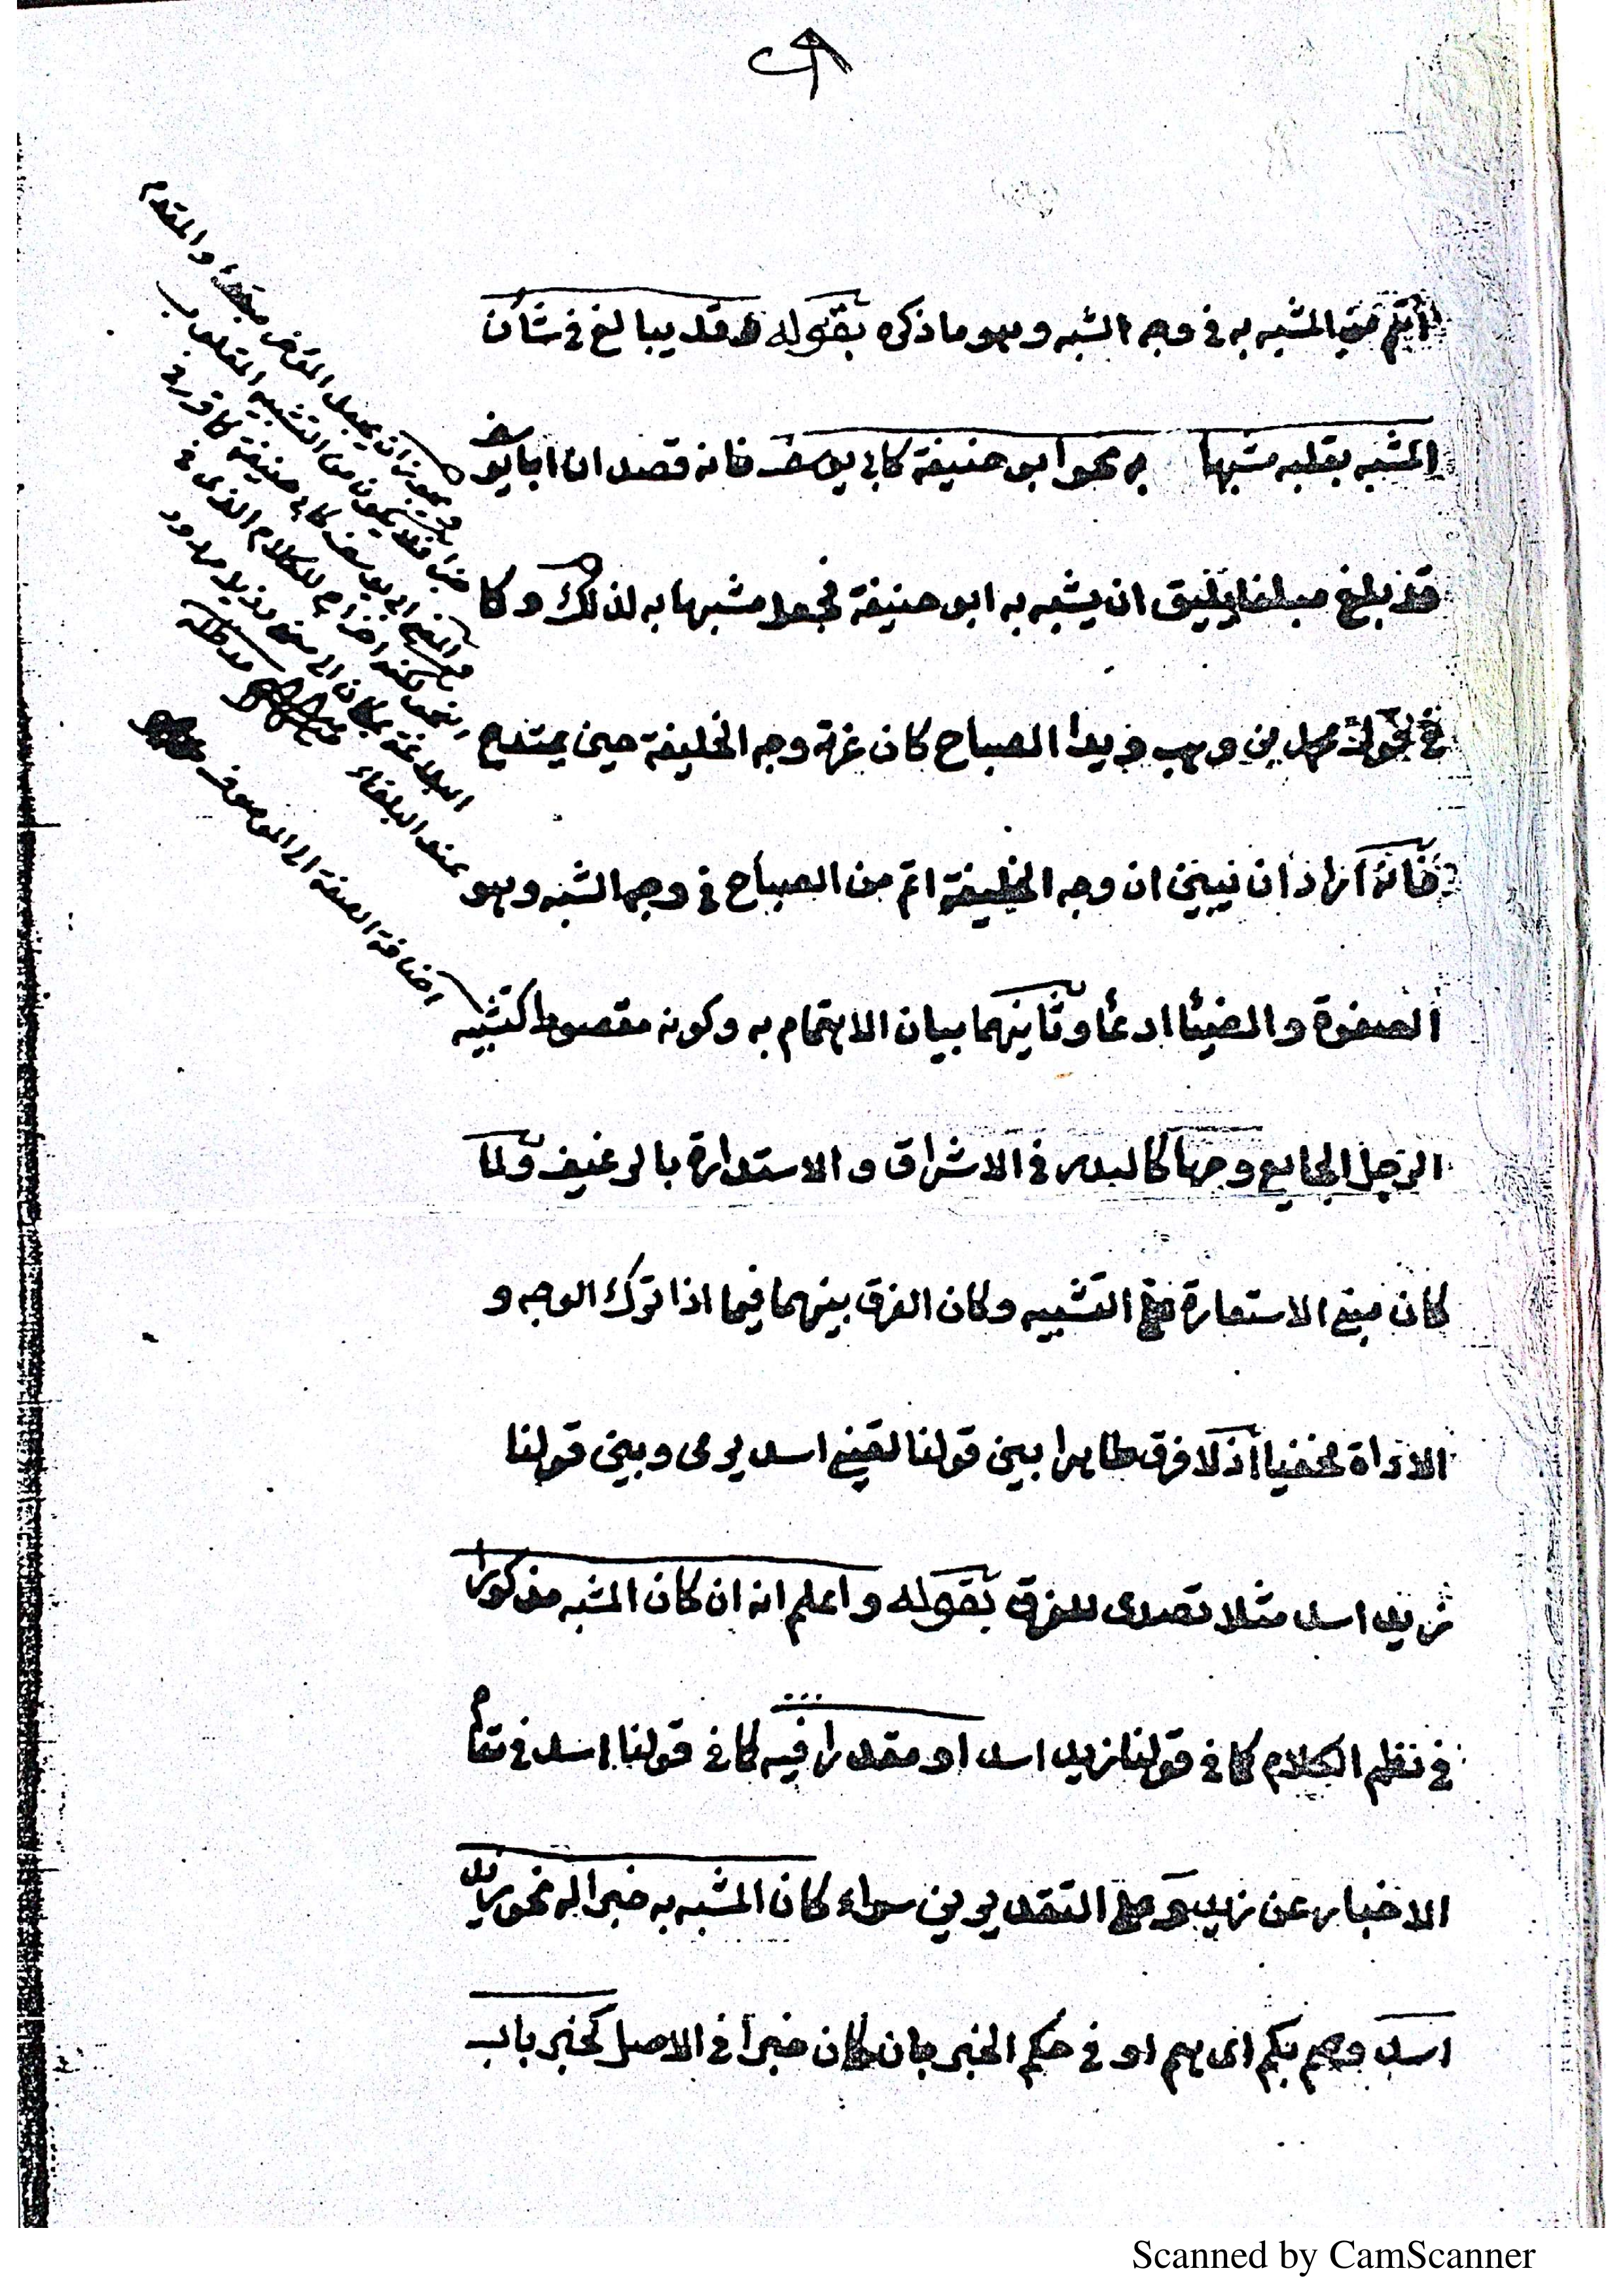 اتم من المشبه به فى وجه الشبه وهو ما ذكره بقوله وقد يبالغ فى شأن
المشبه بقلبه مشبها به نحو ابو حنيفة كابى يوسف فانه قصد ان ابا يوسف
قد بلغ مبلغا يليق ان يشبه به ابو حنيفة فجعل مشبها به لذلك وكما
فى قول محمد بن وهب وبدا الصباح كان غرته وجه الخليفة حين يمتدح
فانه اراد ان يبين ان وجه الخليفة اتم من الصباح فى وجه الشبه وهو
الصفوة والضيئا ادعأ وثانيهما بيان الاهتمام به وكونه مقصودا كتشبيه
الرجل الجايع وجها كالبدر فى الاشراق والاستدارة بالرغيف ولما
كان مبنى الاستعارة على التشبيه وكان الفرق بينهما فيما اذا ترك الوجه و
الاداة مخفيا اذ لا فرق ظاهرا بين قولنا لقينى اسد يرمى وبين قولنا
زيد اسد مثلا تصدى للفرق بقوله واعلم انه ان كان المشبه مذكورا
فى نظم الكلام كما فى قولنا زيد اسد او مقدرا فيه كما فى قولنا اسد فى مقام
الاخبار عن زيد وعلى التقديرين سواء كان المشبه به خبرا له نحو زيد
اسد وصم بكم اى هم او فى حكم الخبر بان كان خبرا فى الاصل كخبر باب
ويجوز ان يجعل المؤخر مبتدأ والمقدم
خبرا فلا يكون من التشبيه المقلوب
البلاغة
عند البلغاء
اضافة الصفة الى الموصوف
Scanned by CamScanner